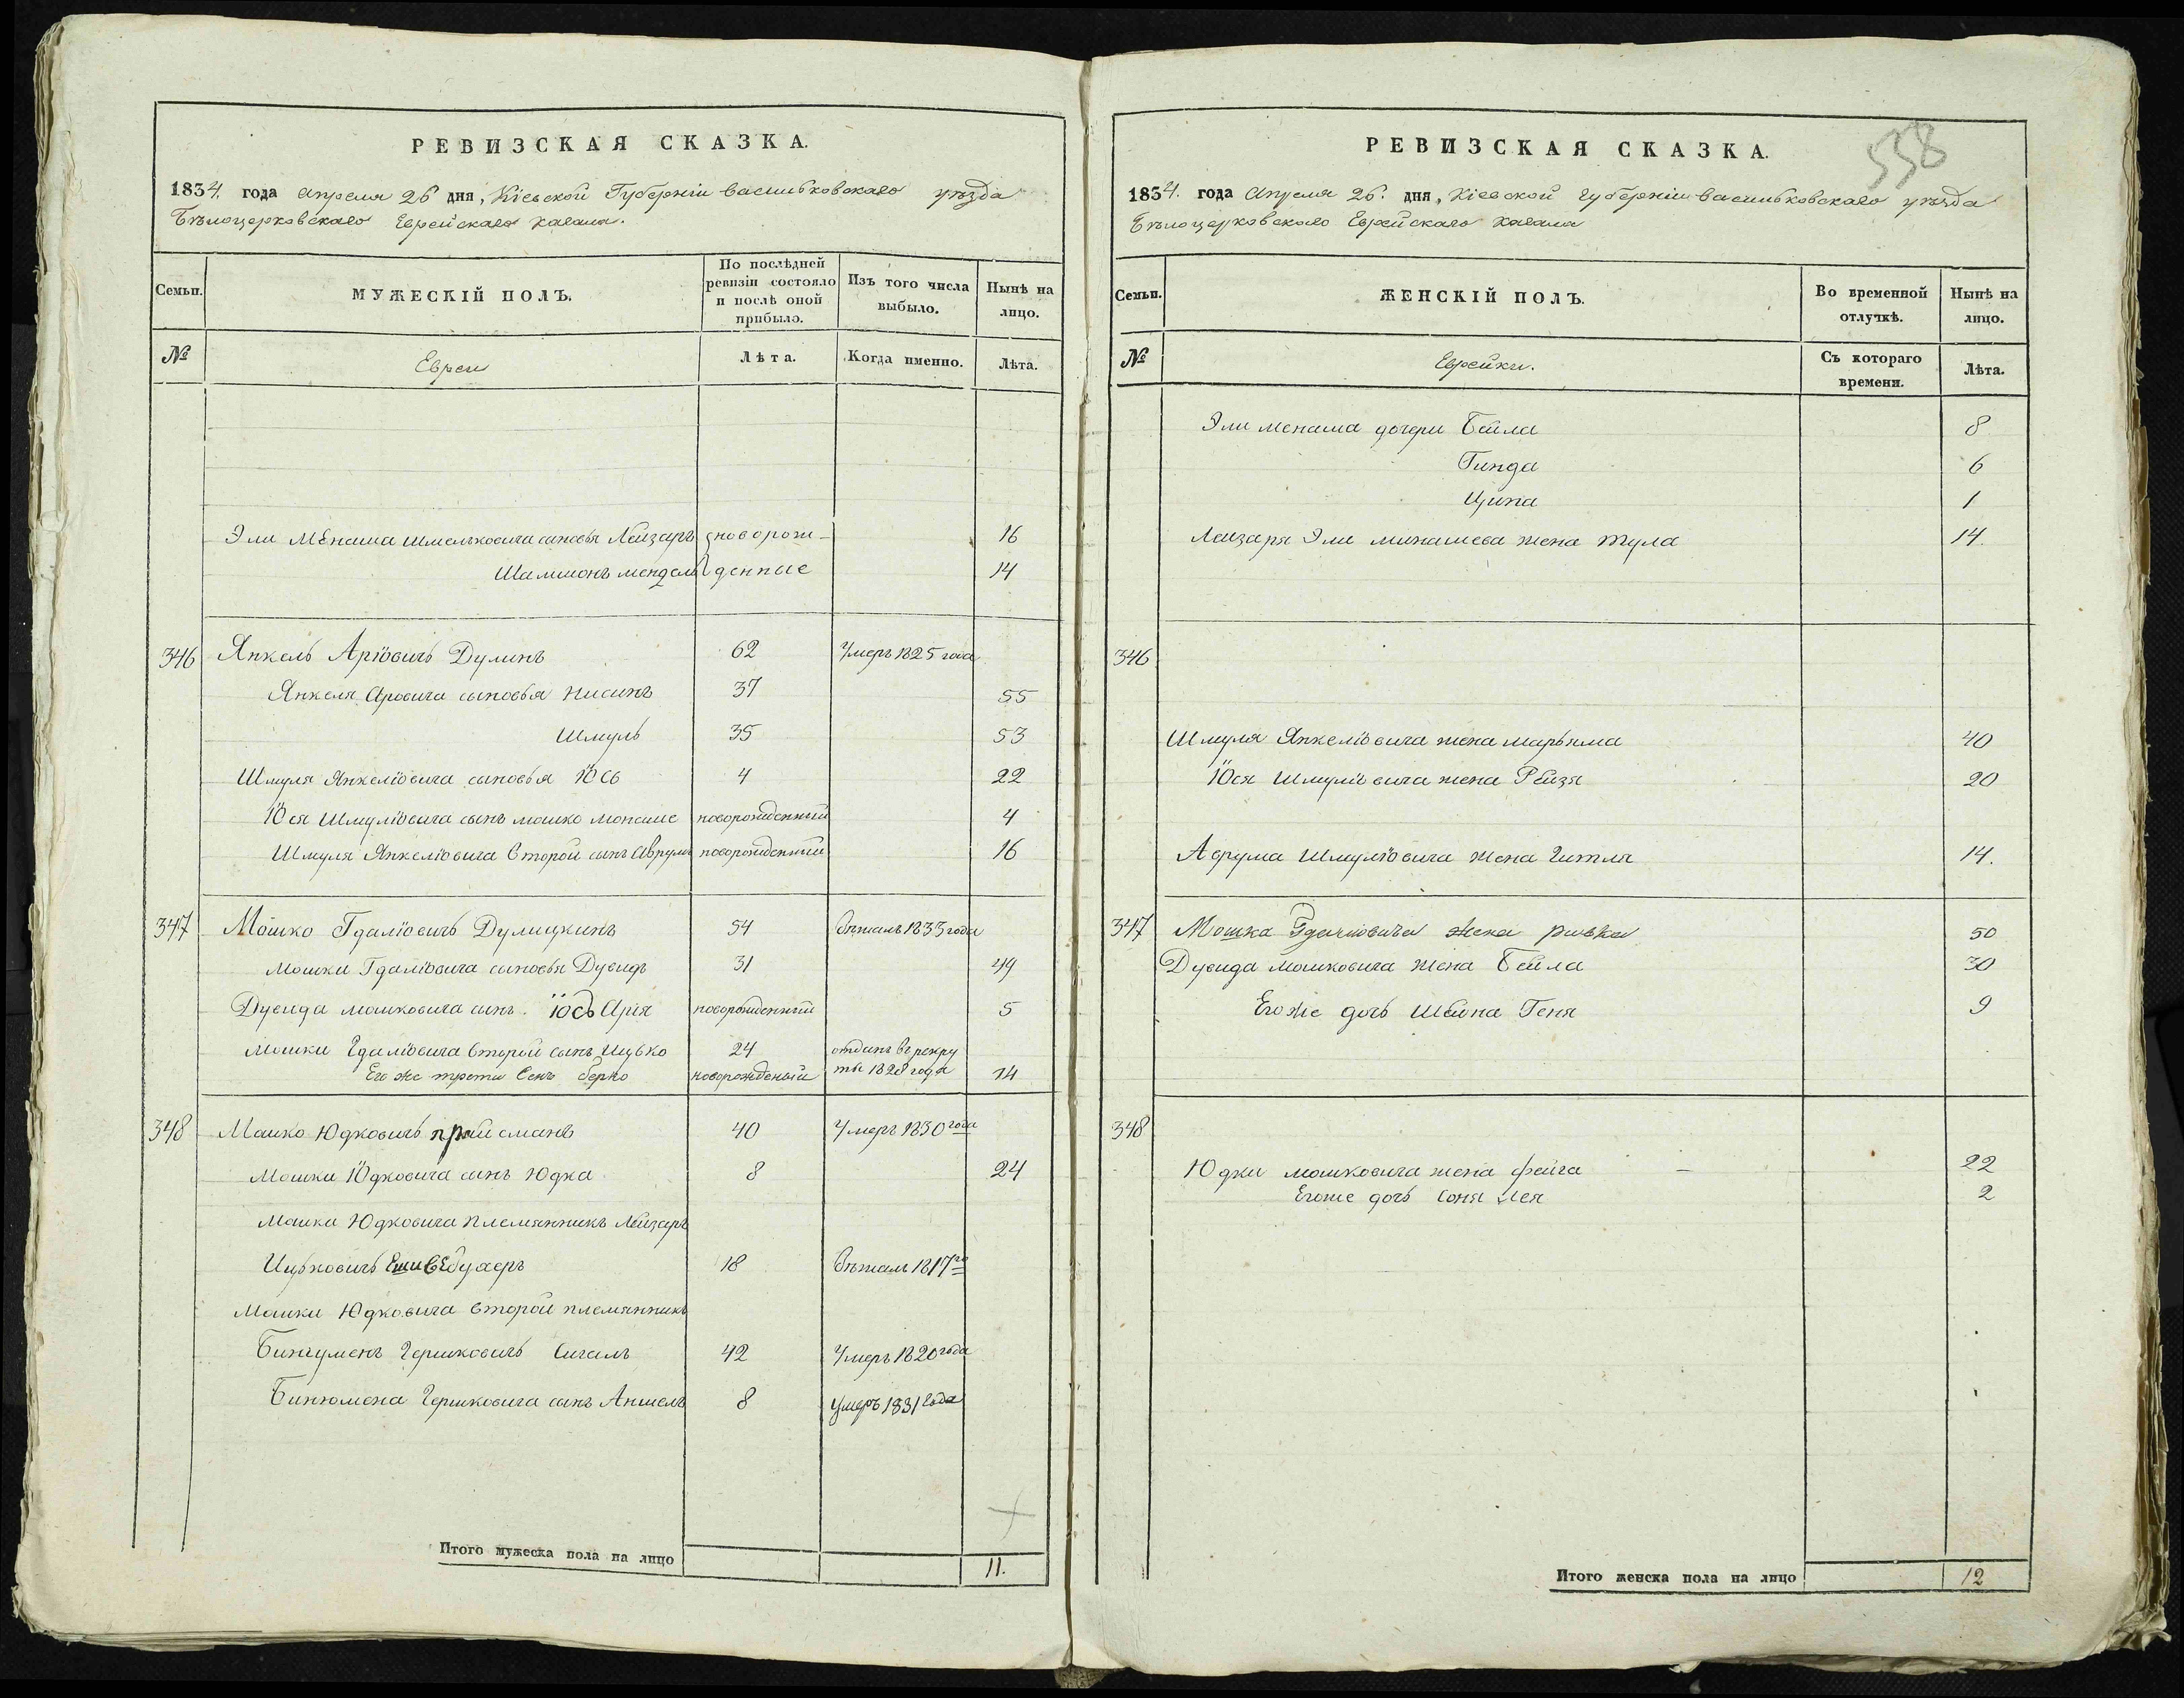 РЕВИЗСКАЯ СКАЗКА.
1834. года апреля 26 дня, Кіевской Губерніи васильковскаго уѣзда
Бѣлоцерковскаго Еврейскаго кагала.
Семьи.
МУЖЕСКІЙ ПОЛЪ.
По послѣдней ревизіи состояло и послѣ оной прибыло.
Изъ того числа выбыло.
Нынѣ на лицо.
№
Евреи
Лѣта.
Когда именно.
Лѣта.
Эли Менаша Шмельковича сыновья Лейзаръ новорож- 16
Шамшонъ мендель денные 14
346 Янкель Аріовичъ Дулинъ 62 Умеръ 1825 года
Янкеля Аровича сыновья Нисинъ 37 55
Шмуль 35 53
Шмуля Янкеліовича сыновья Юсь 4 22
Юся Шмуліовича сынъ мошко монаше новорожденный 4
Шмуля Янкеліовича второй сынъ Аврумъ новорожденный 16
347 Мошко Гдаліовичъ Дулицкинъ 54 бѣжалъ 1833 года
Мошки Гдаліовича сыновья Дувидъ 31 49
Дувида мошковича сынъ Юсь Арія новорожденный 5
Мошки Гдаліовича второй сынъ Ицько 24 отданъ в рекру
Его же трети сынъ берко новорожденый ты 1828 года 14
348 Мошко Юдковичъ прайсманъ 40 Умеръ 1830 года
Мошки Юдковича сынъ Юдка 8 24
Мошки Юдковича племянникъ Лейзаръ
Ицьковичъ Ешивебухеръ 18 бѣжалъ 1817го
Мошки Юдковича второй племянникъ
Бинъуменъ Гершковичъ Сигалъ 42 Умеръ 1820 года
Бинюмена Гершковича сынъ Аншель 8 Умеръ 1831 года
Итого мужеска пола на лицо 11.
РЕВИЗСКАЯ СКАЗКА.
558
1834. года Апреля 26. дня, Кіевской губерніи васильковскаго уѣзда
Бѣлоцерковскаго Еврейскаго кагала
Семьи.
ЖЕНСКІЙ ПОЛЪ.
Во временной отлучкѣ.
Нынѣ на лицо.
№
Еврейки.
Съ котораго времени.
Лѣта.
Эли менаша дочери Бейла 8
Гинда 6
Ципа 1
Лейзаря Эли минашева жена Тула 14.
346
Шмуля Янкеліовича жена марьяма 40
Юся Шмуліовича жена Рейзя 20
Аврума Шмуліовича жена Гитля 14.
347 Мошка Гдаліовича жена ривка 50
Дувида мошковича жена Бейла 30
Его же дочь Шейна Геня 9
348
Юдки мошковича жена фейга 22
Егоже дочь соня лея 2
Итого женска пола на лицо 12